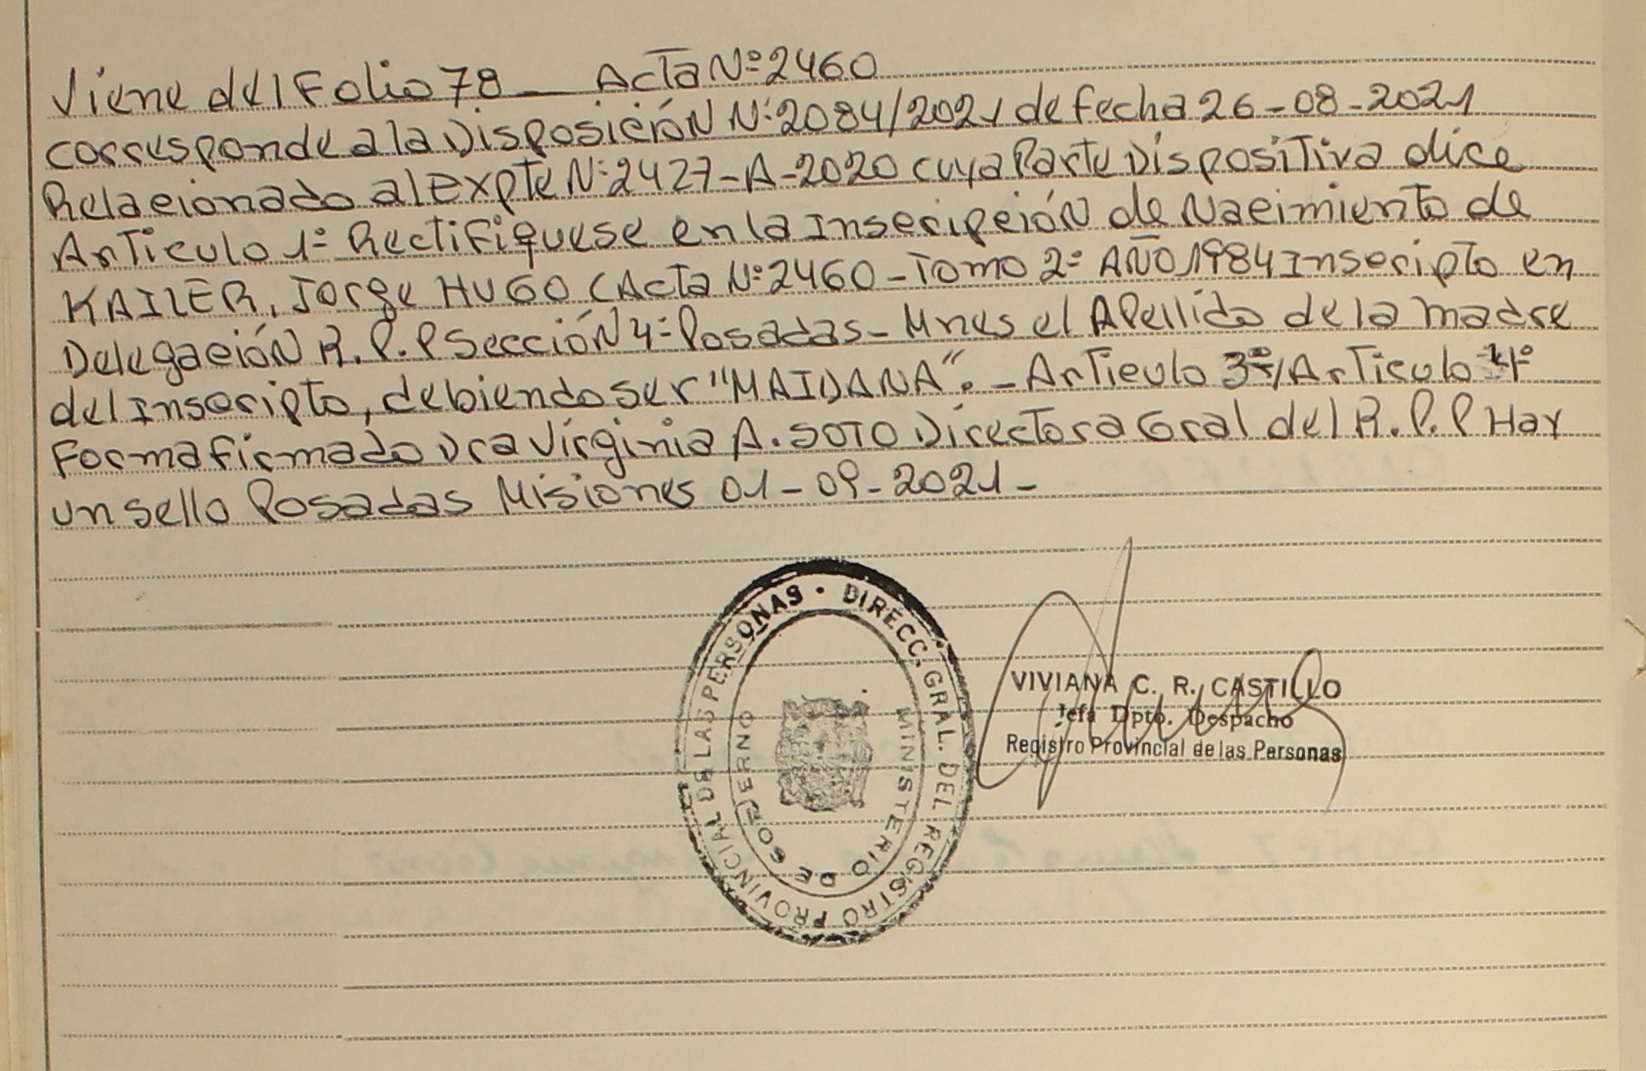 Viene del Folio 78 _ Acta Nº 2460
corresponde a la Disposición Nº 2084/2021 de fecha 26-08-2021
Relacionado al Expte Nº 2427-A-2020 cuya Parte Dispositiva dice
Articulo 1º Rectifiquese en la Inscripción de Nacimiento de
KAILER, Jorge HUGO (Acta Nº 2460 - Tomo 2º AÑO 1984 Inscripto en
Delegación R.P.P Sección 4º Posadas - Mnes el Apellido de la madre
del Inscripto, debiendo ser "MAIDANA". - Articulo 3º/ Articulo 4º
Forma firmado Dra Virginia A. SOTO Directora Gral del R.P.P Hay
un sello Posadas Misiones 01-09-2021 -
DIRECC. GRAL. DEL REGISTRO PROVINCIAL DE LAS PERSONAS ·
MINISTERIO DE GOBIERNO
VIVIANA C. R. CASTILLO
Jefa Dpto. Despacho
Registro Provincial de las Personas